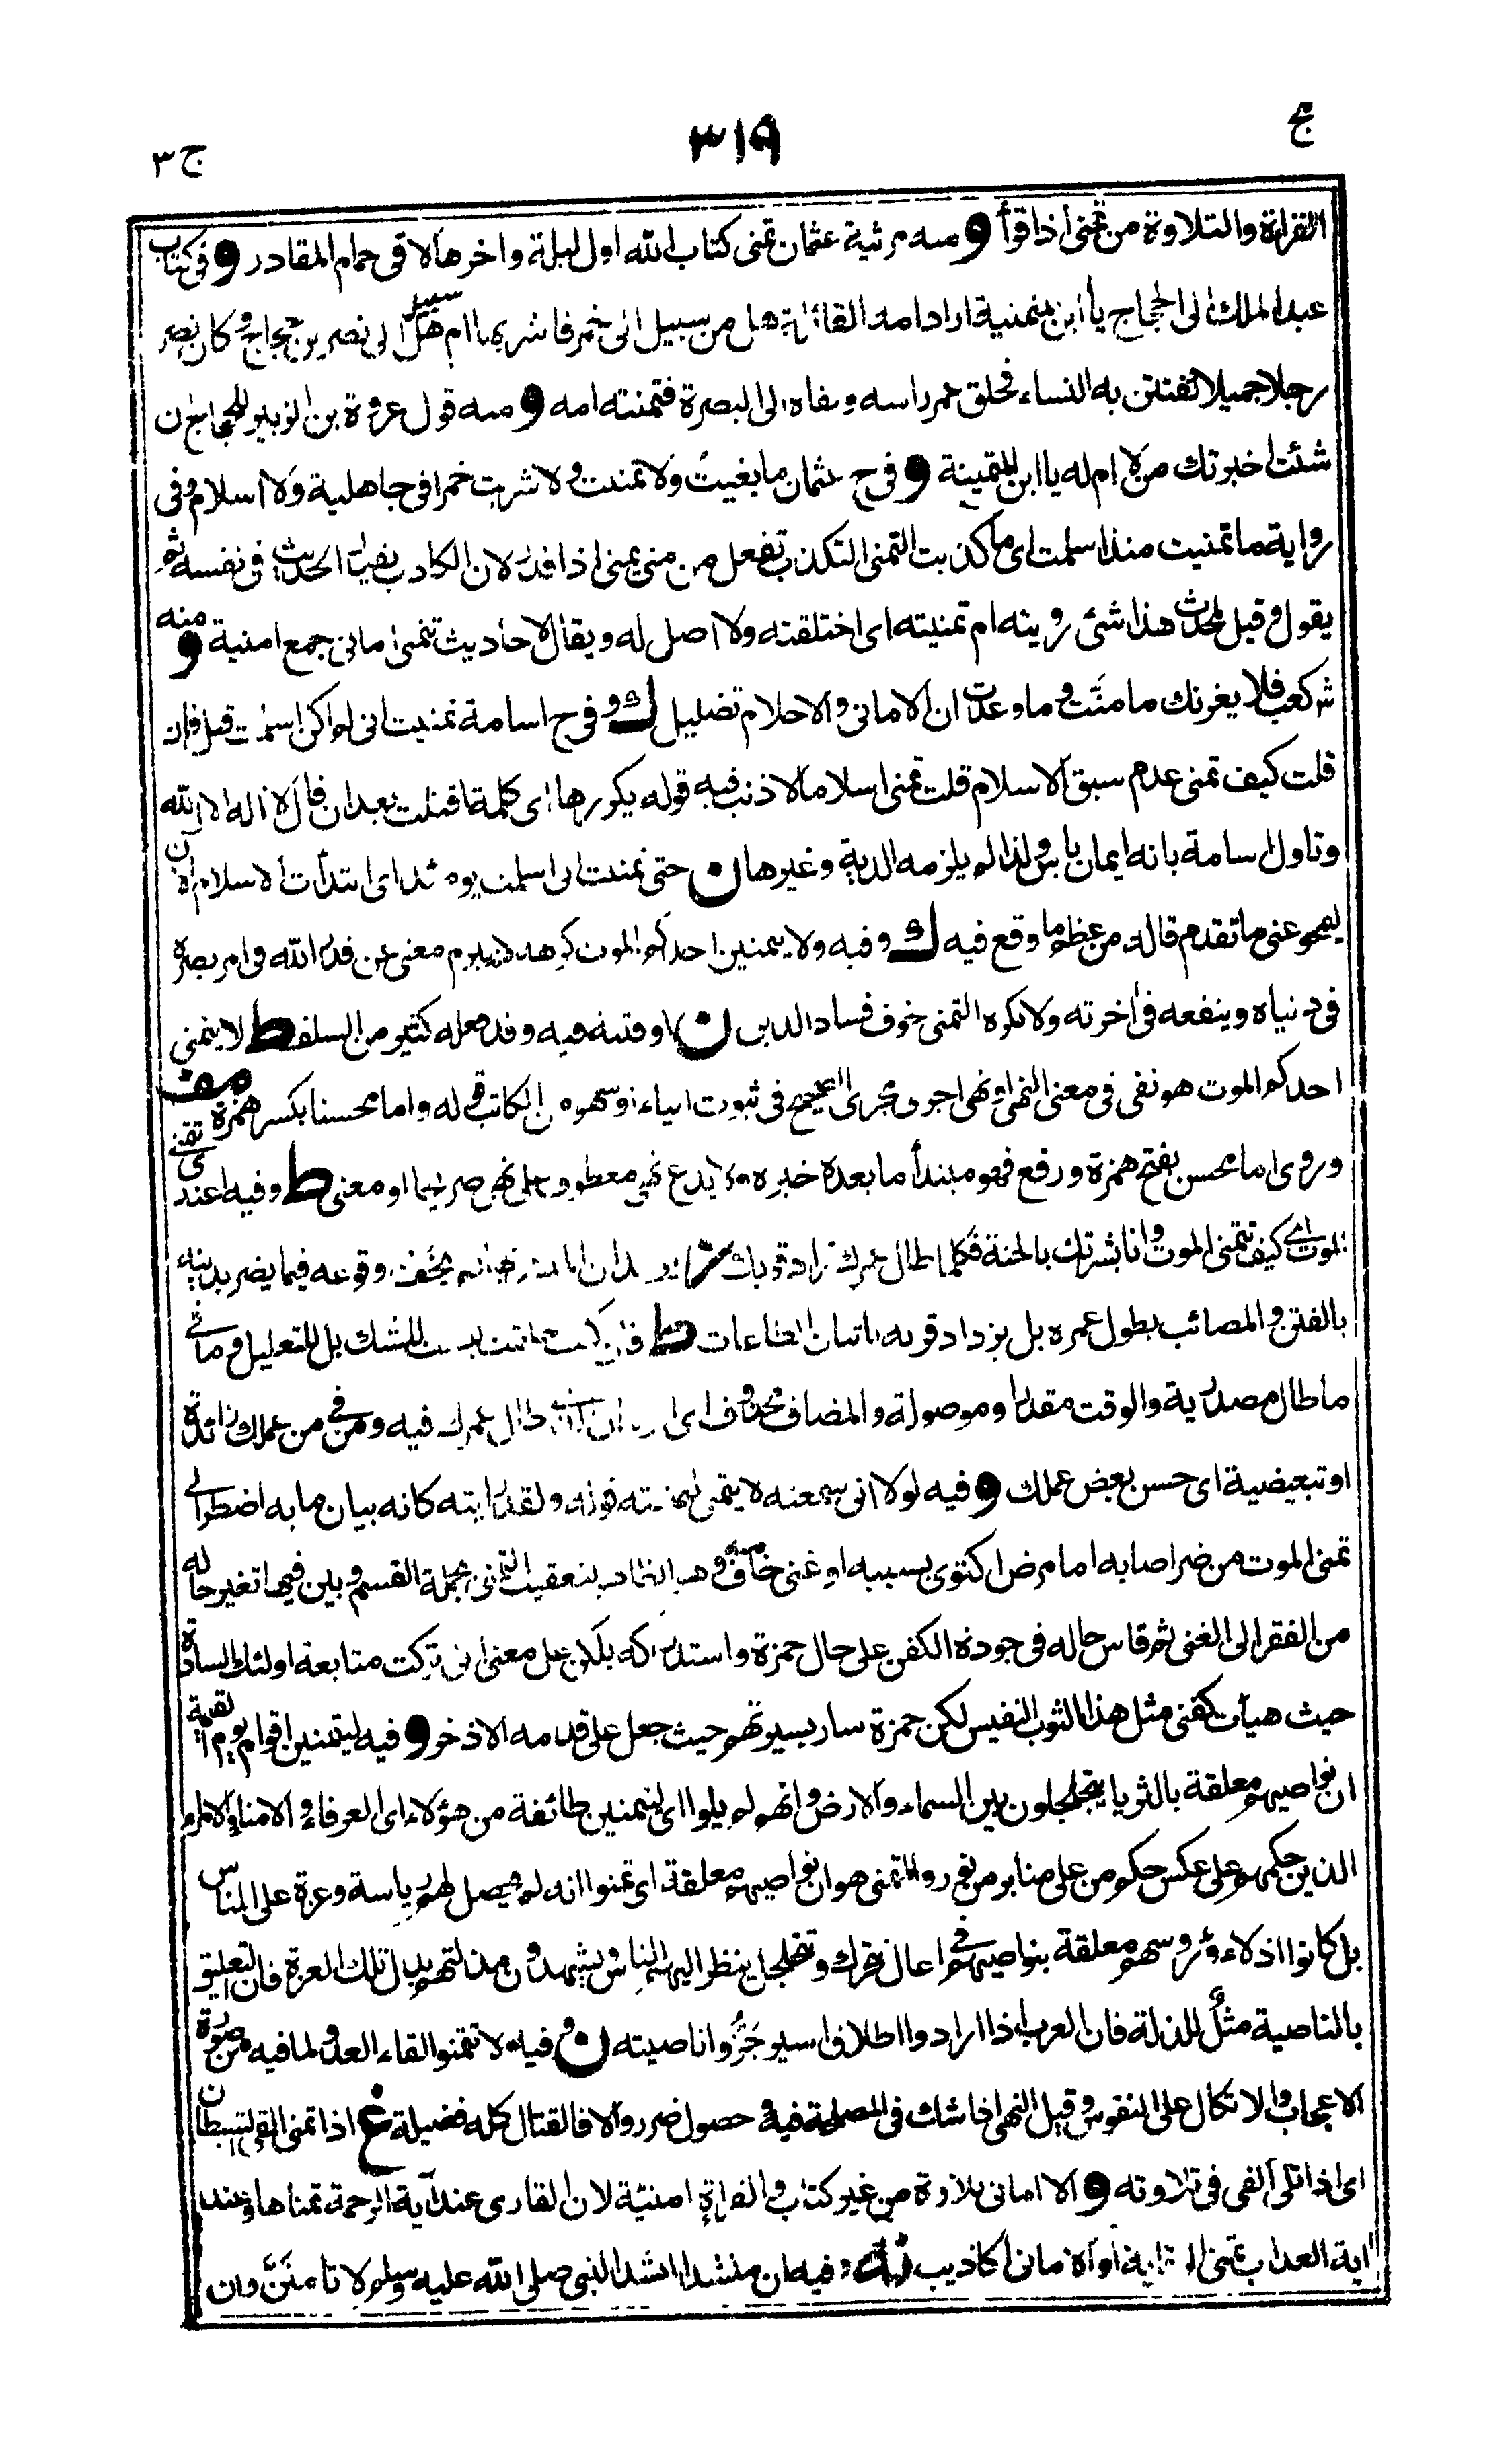 مج
٣١٩
ج ٣
القراءة والتلاوة من تمنى اذا قرأ و منه مرثية عثمان تمنى كتاب الله اول ليلة واخرها لاقى حمام المقادر و فى كتاب
عبد الملك الى الحجاج يا ابن المتمنية اراد امه القائلة هل من سبيل الى خمر فاشربها ام هل سبيل الى نصر بن حجاج وكان نصر
رجلا جميلا تفتتن به النساء فحلق عمر راسه ونفاه الى البصرة فتمنته امه و منه قول عروة بن الزبير للحجاج ان
شئت اخبرتك من لا ام له يا ابن المتمنية و فى ح عثمان ما تغنيت ولا تمنيت ولا شربت خمرا فى جاهلية ولا اسلام وفى
رواية ما تمنيت منذ اسلمت اى ما كذبت التمنى التكذب تفعل من منى يمنى اذا قدر لان الكاذب يقدر الحديث فى نفسه ثم
يقوله وقيل لمحدث هذا شئ رويته ام تمنيته اى اختلقته ولا اصل له ويقال لاحاديث تتمنى امانى جمع امنية و منه
ش كعب فلا يغرنك ما منّت وما وعدت ان الامانى والاحلام تضليل ك و فى ح اسامة تمنيت انى لم اكن اسلمت قبل فان
قلت كيف تمنى عدم سبق الاسلام قلت تمنى اسلاما لا ذنب فيه قوله يكررها اى كلمة اقتلت بعد ان قال لا اله الا الله
وتاول اسامة بانه ايمان باس ولذا لم يلزمه الدية وغيرها ن حتى تمنيت انى اسلمت يومئذ اى ابتدأت الاسلام الان
ليمحو عنى ما تقدم قاله من عظم ما وقع فيه ك و فيه ولا يتمنين احدكم الموت
فى دنياه وينفعه فى اخرته ولا يكره التمنى خوف فساد الدين ن او فتنة فيه وقد فعله كثير من السلف ط لا يتمنى
احدكم الموت هو نفى فى معنى النهى او نهى اجرى مجرى الصحيح فى ثبوت الياء او سهو من الكاتب قوله واما محسنا بكسر همزة
وروى اما محسن بفتح همزة ورفع فهو مبتدأ ما بعده خبره ولا يدع نهى معطوف على نهى صريحا او معنى ط وفيه اعندى تتمنى
الموت اى كيف تتمنى الموت وانا بشرتك بالجنة فكلما طال عمرك زاد قربك
بالفتن والمصائب بطول عمره بل يزداد قربه باتيان الطاعات ط للشك بل للتعليل وما فى
ما طال مصدرية والوقت مقدر او موصولة والمضاف محذوف اى عمرك فيه ومن فى من عملك زائدة
او تبعيضية اى حسن بعض عملك و فيه لولا انى سمعته لا يتمنى لتمنيته قوله ولقد رايته كانه بيان ما به اضطر الى
تمنى الموت من ضر اصابه اما مرض اكتوى بسببه او غنى خاف منه بجملة القسم وبين فيها تغير حاله
من الفقر الى الغنى ثم قاس حاله فى جودة الكفن على حال حمزة واستدركه بلكن على معنى انى تركت متابعة اولئك السادة
حيث هيأت كفنى مثل هذا الثوب النفيس لكن حمزة سار بسيرتهم حيث جعل على قدمه الاذخر و فيه ليتمنين اقوام يوم القيمة
ان نواصيهم معلقة بالثريا يتجلجلون بين السماء والارض وانهم لم يلوا اى ليتمنين طائفة من هؤلاء اى العرفاء والامناء والامراء
الذين حكمهم على عكس حكم من على منابر من نور والمتمنى هو ان نواصيهم معلقة اى تمنوا انه لم يحصل لهم رياسة وعزة على الناس
بل كانوا اذلاء ورؤسهم معلقة بنواصيهم فى اعال تتحرك وتتجلجل ينظر اليهم الناس ويشهدون مذلتهم بدل تلك العزة فان التعليق
بالناصية مثلٌ للمذلة فان العرب اذا ارادوا اطلاق اسير جَزُّوا ناصيته ن وفيه لا تتمنوا لقاء العدو لما فيه من صورة
الاعجاب والاتكال على النفوس وقيل النهى اذا شك فى المصلحة فيه وحصول ضرر والا فالقتال كله فضيلة غ اذا تمنى القى الشيطان
اى اذا تلى القى فى تلاوته و الا امانى تلاوة من غير كتاب والقراءة امنية لان القارى عند آية الرحمة تمناها وعند
اية العذاب تمنى الوقاية او الامانى اكاذيب نه وفيه ان منشدا انشد النبى صلى الله عليه وسلم لا تامنَنَّ وان